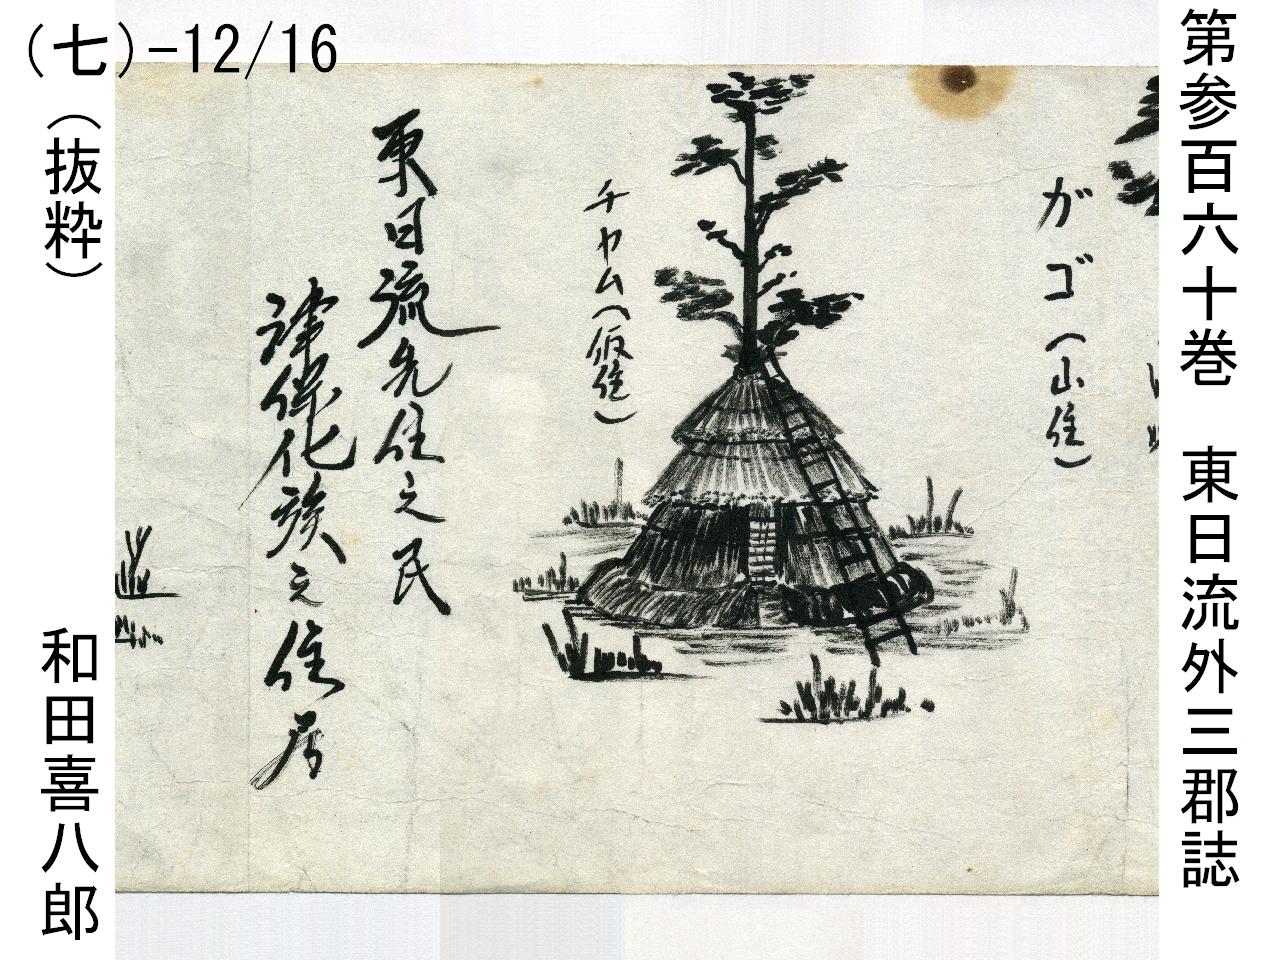 第参百六十巻　東日流外三郡誌
がゴ（山住）
チヤム（仮住）
東日流先住之民
津保化族之住居
(七)-12/16
（抜粋）
和田喜八郎